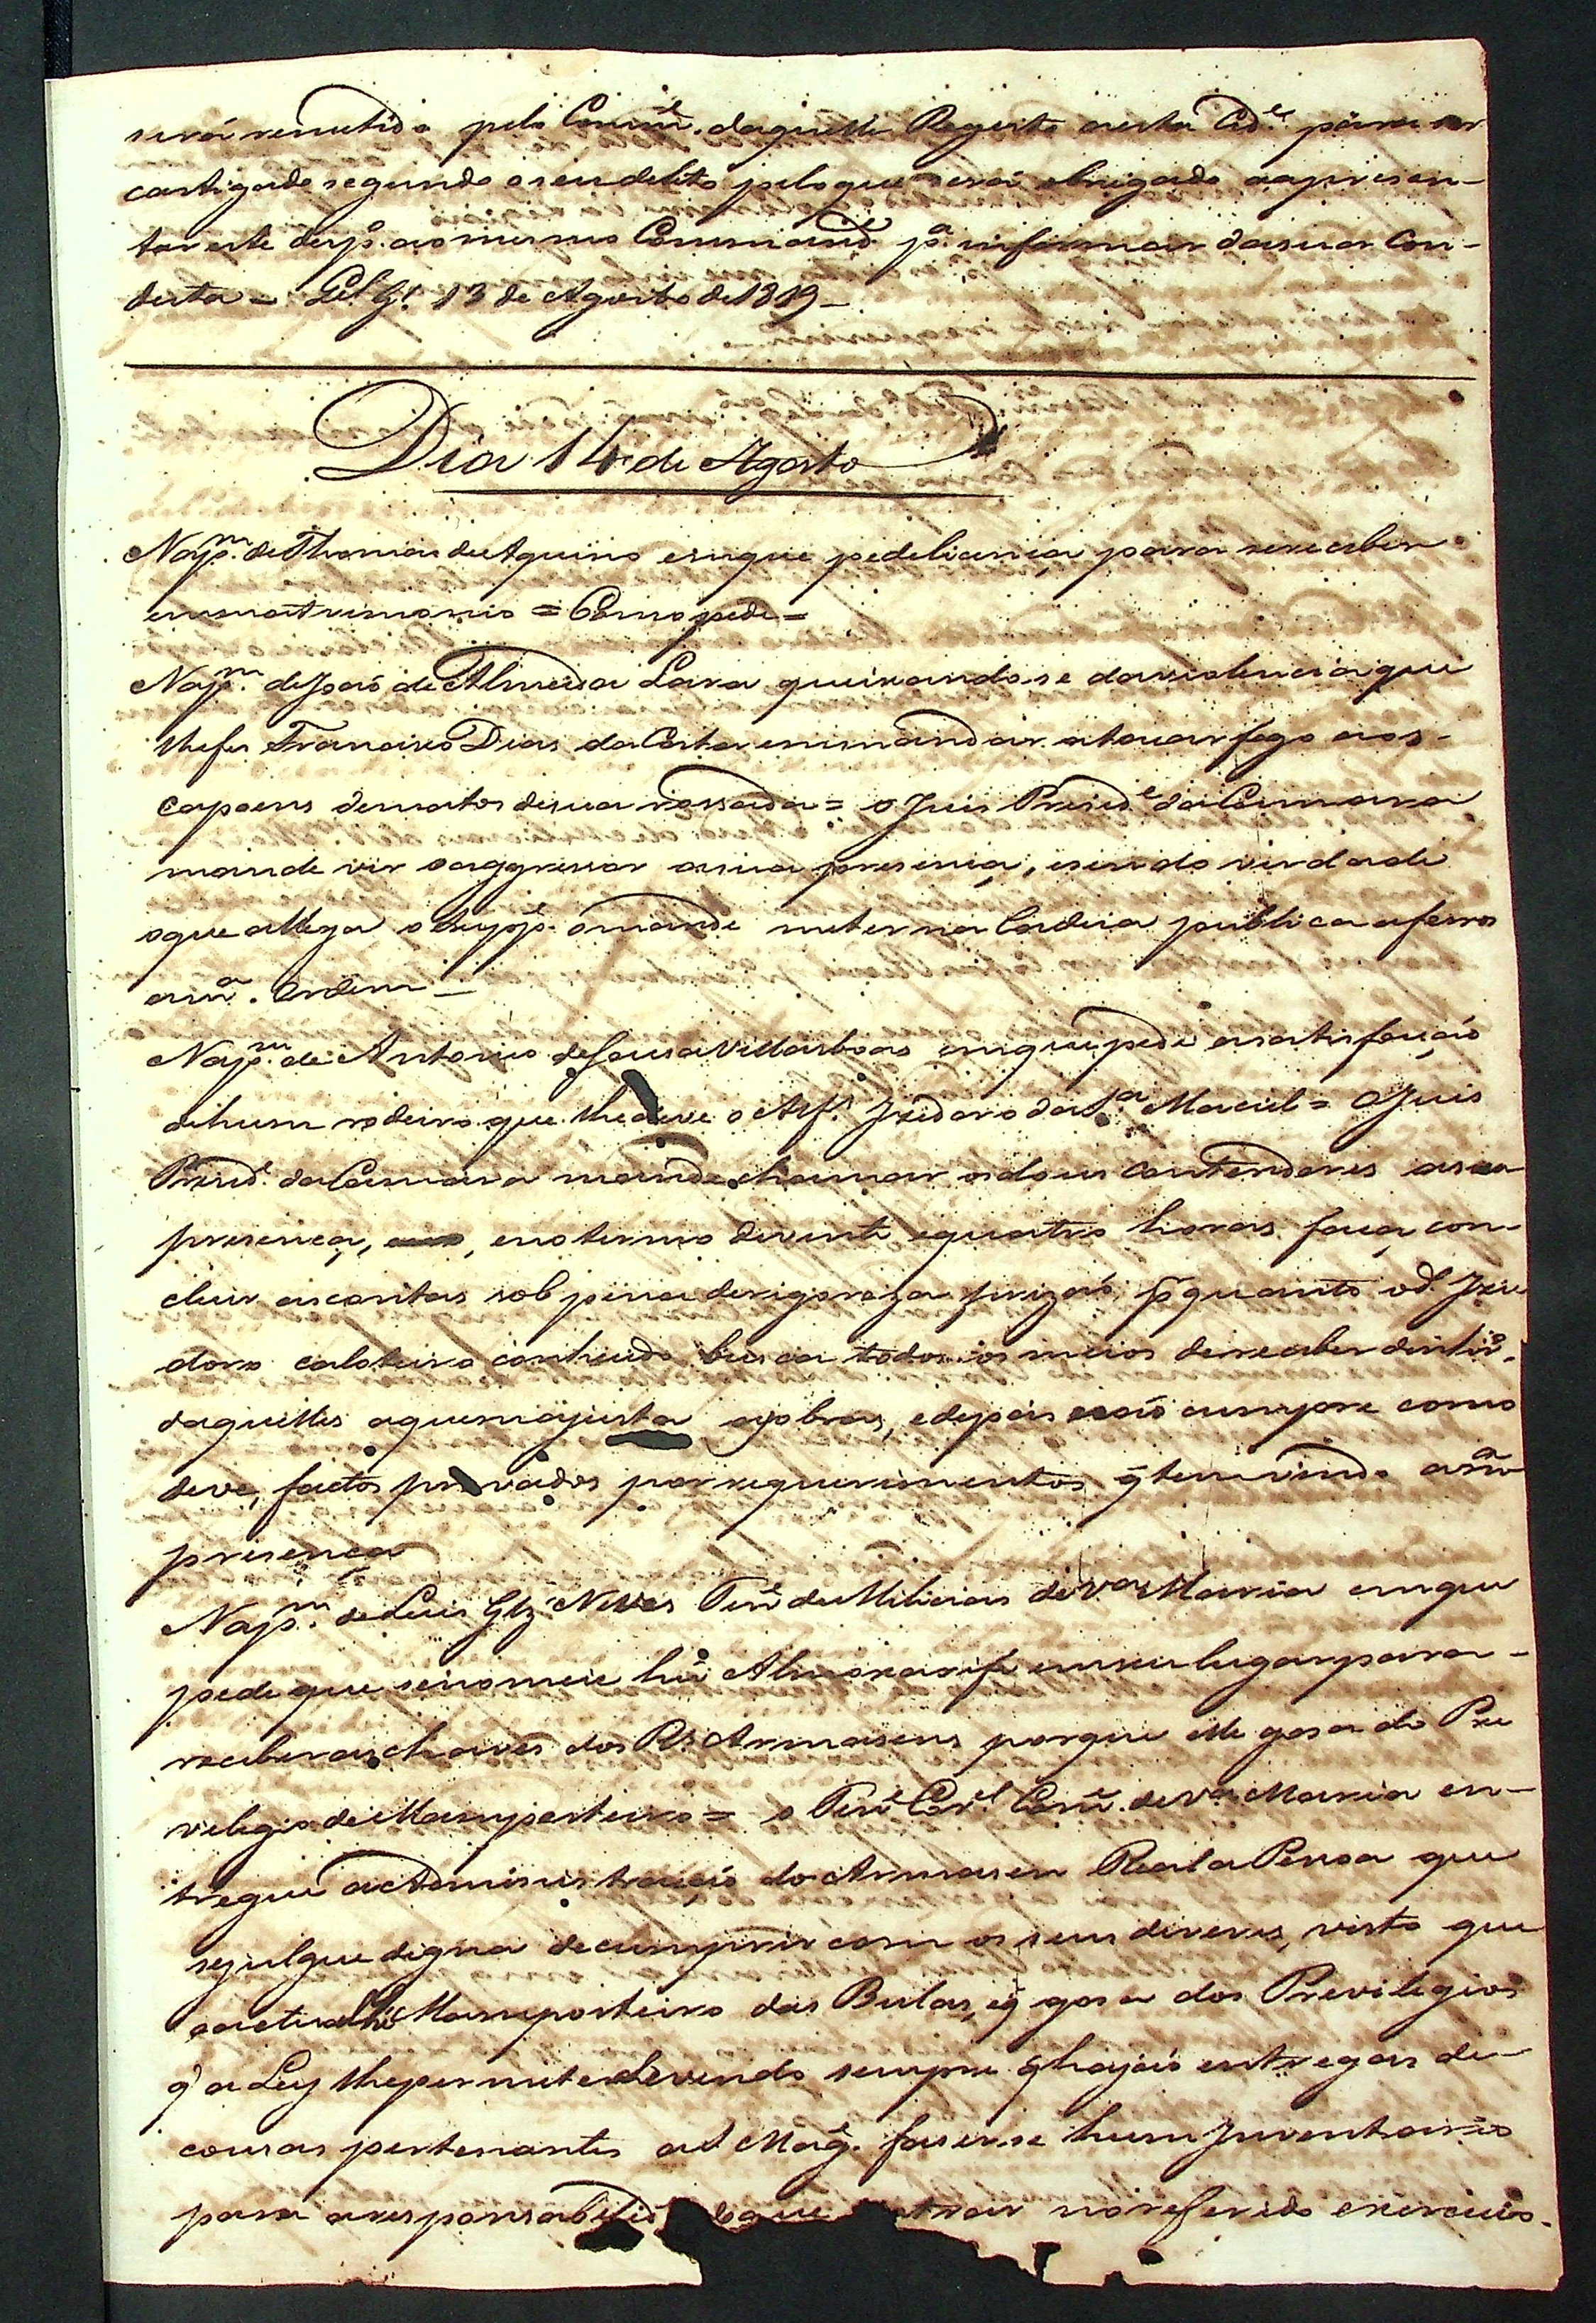 será remetido pelo Comm.e daquelle Registo a esta Cid.e para ser
castigado segundo o seu delicto pelo que será obrigado a apresen-
tar este desp.o ao mesmo Command.e p.a informar da sua Con-
duta = 13 de Agosto de 1819 _
Dia 14 de Agosto
Na p.m de Thomas de Aquino em que pede licença para se receber
em matrimonio = Como pede =
Na p.m de João de Almeida Lara queixando-se da violencia que
lhe fes Francisco Dias da Costa em mandar atacar fogo aos
capoens de matos de sua rossada = o Juis Presid.e da Camara
mande vir o aggressor a sua presença, e sendo verdade
o que allega o Supp.e o mande meter na Cadeia publica a ferros
a m.a ordem _
Na p.m de Antonio de Sousa Villasboas em que pede a satisfação
de hum rodeiro que lhe deve o Alf.s Izidoro da S.a Maciel = O Juis
Presid.e da Camara mande chamar os dous contendores a sua
presença, e no termo de vinte e quatro horas faça con-
cluir as contas sob pena de rigoroza prizão, p.r quanto o d.o Izi
doro caloteiro conhecido busca todos os meios de receber dinhr.o
daquelles a quem ajusta as obras, e depois não cumpre como
deve, factos provados por requerimentos q̃ tem vindo a m.a
presença
Na p.m de Luis Glz' Neves Ten.e de Milicias de V.a Maria em que
pede que se nomeie hũ Almoxarife em seu lugar para
receber as chaves dos R.s Armasens porque elle gosa do Pre
velegio de Mamposteiro = o Ten.e Cor.l Com.e de V.a Maria en-
tregue a Administração do Armasem Real a Pessoa que
se julgue digna de cumprir com os seus deveres, visto que
o actual he Mamposteiro das Bulas, e q̃ gosa dos Previlegios
q̃ a Ley lhe permite devendo sempre q̃ hajão entregas de
cousas pertenentes a S. Mag.e faser-se hum Inventario
para a responsabelid que entrar no referido exercicio.